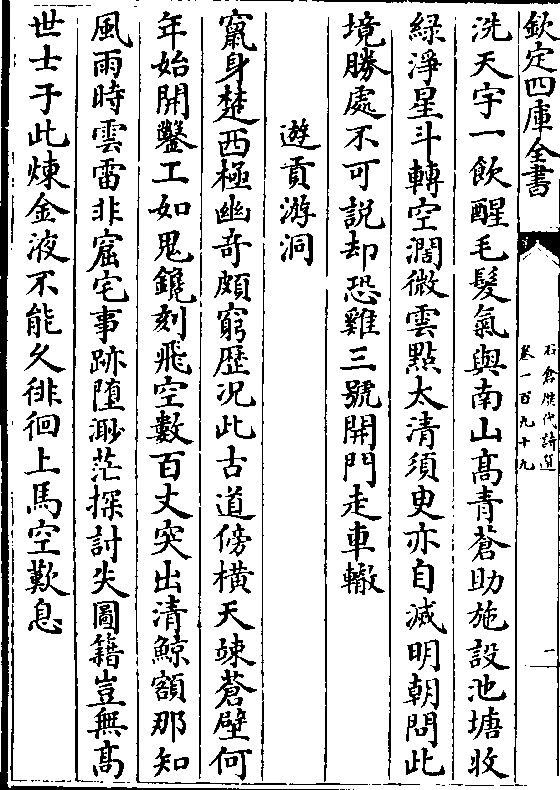 欽定四庫全書
石倉歷代詩選
卷一百九十九
一
洗天宇一飲醒毛髮氣與南山髙青蒼助施設池塘收
緑淨星斗轉空濶微雲點太清須臾亦自滅明朝問此
境勝處不可説却恐雞三號開門走車轍
遊貢游洞
竄身楚西極幽奇頗窮歴况此古道傍橫天竦蒼壁何
年始開鑿工如鬼鑱刻飛空數百丈突出清鯨額那知
風雨時雲雷非窟宅事跡墮渺茫探討失圖籍豈無髙
世士于此煉金液不能久徘徊上馬空歎息